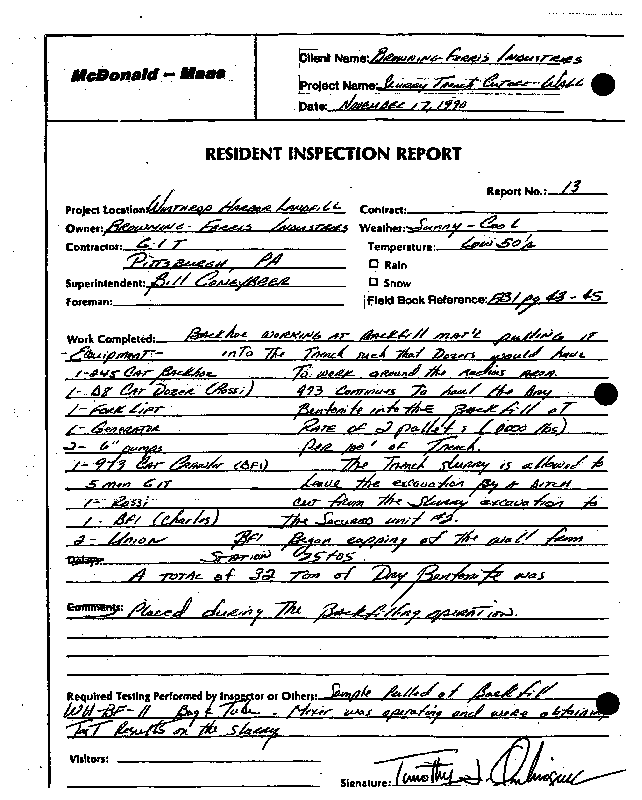 McDonald – Maas
Client Name: Browning-Ferris Industries
Project Name: Slurry Trench Cutoff-Wall
Date: November 17, 1990
RESIDENT INSPECTION REPORT
Report No.: 13
Project Location: Winthrop Harbor Landfill
Contract:
Owner: Browning-Ferris Industries
Weather: Sunny - Cool
Contractor: GIT
Temperature: Low 50's
Pittsburgh, PA
Rain
Superintendent: Bill
Snow
Foreman:
Field Book Reference: FB1 pg 43-45
Work Completed: Backhoe working at Backfill mat'l pulling it
-Equipment- into the Trench such that Dozers would have
1-245 Cat Backhoe To work around the area.
1- D8 Cat Dozer (Rossi) 973 continues To haul the Dry
1- Fork Lift Bentonite into the Backfill at
1- Generator Rate of 2 pallets (8000 lbs)
2- 6" pumps Per 100' of Trench.
1- 973 Cat Crawler (BFI) The Trench slurry is allowed to
5 men GIT Leave the excavation by a ditch
1- Rossi cut from the Slurry excavation to
1- BFI (Charles) The Secured unit #2.
2- Union BFI Began capping of the wall from
Delays Station 25+05
A total of 32 Ton of Dry Bentonite was
Comments: Placed during The Backfilling operation.
Required Testing Performed by Inspector or Others: Sample Pulled of Backfill
WH-BF-11 Bag & Tube. Mixer was operating and were obtaining
Test Results on the slurry
Visitors:
Signature: Timothy J.